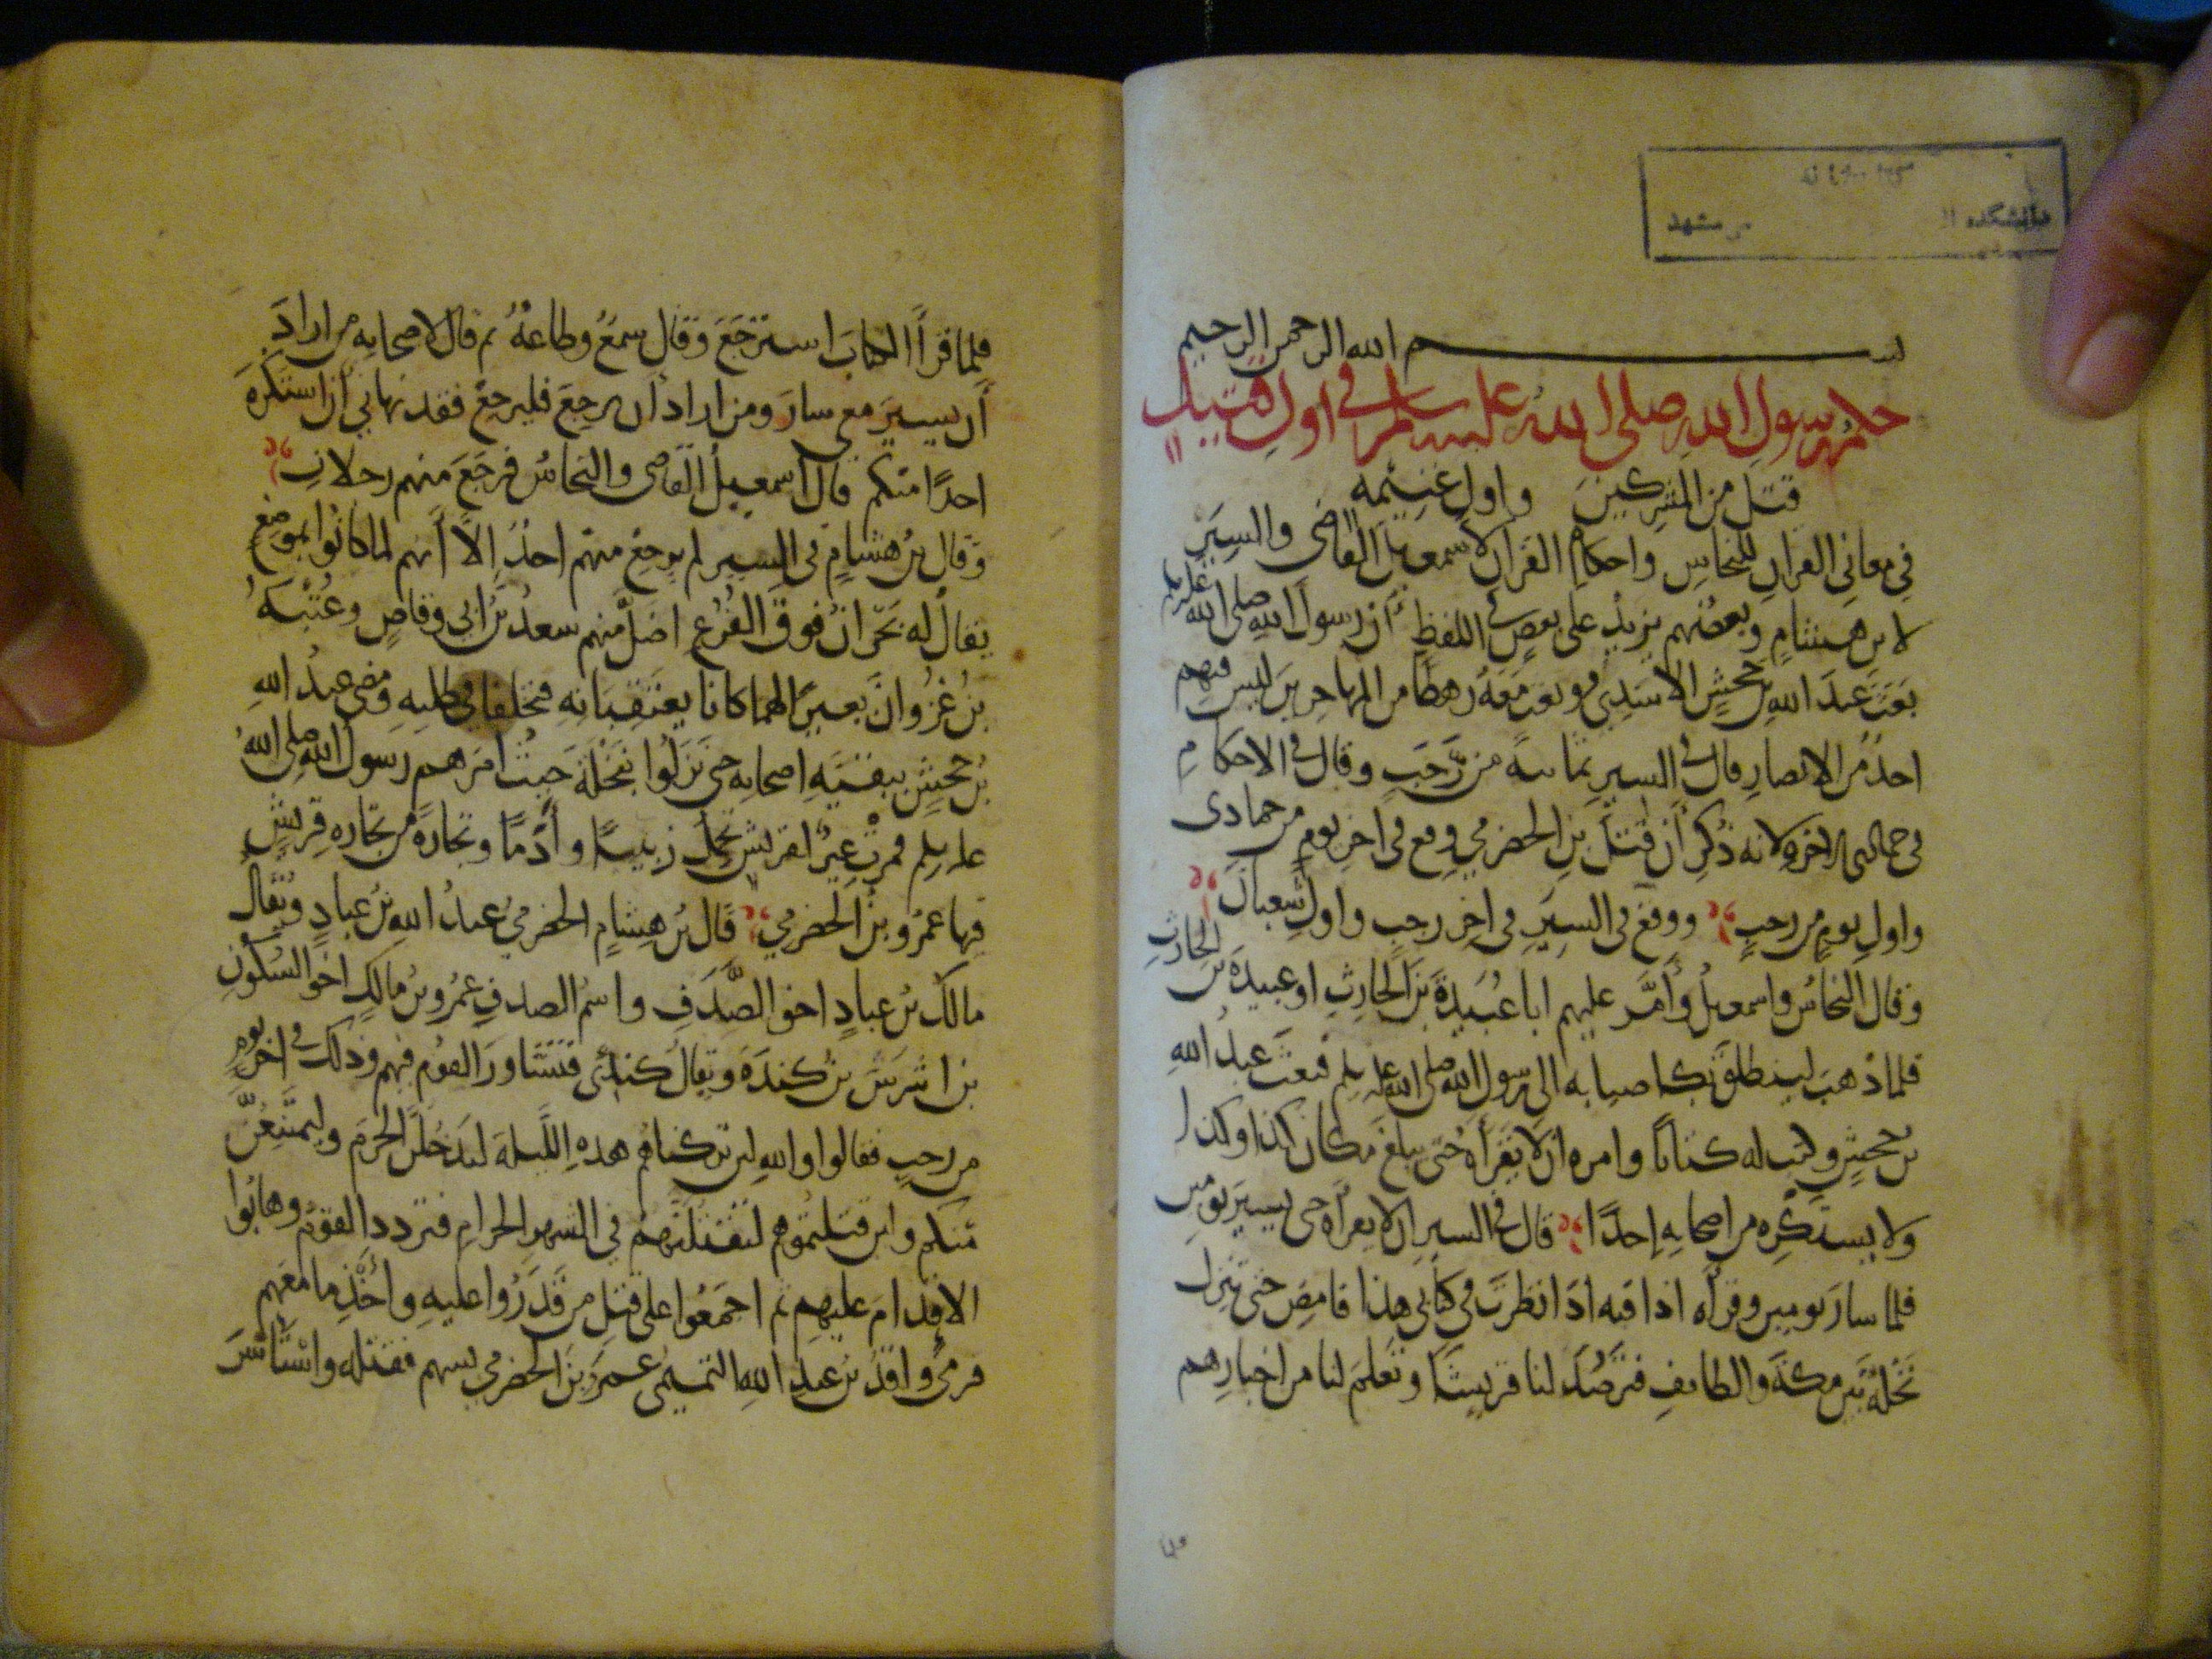 دانشگده
مشهد
بسم الله الرحمن الرحيم
حكم رسول الله صلى الله عليه وسلم في اول قتيل
قتل من المشركين واول غنيمه
في معاني القران للنحاس واحكام القران لاسمعيل القاضى والسير
لابن هشام وبعضهم يزيد على بعض في اللفظ أن رسول الله صلى الله عليه وسلم
بعث عبد الله بن جحش الاسدي وبعث معه رهطا من المهاجرين ليس فيهم
احد من الانصار قال في السير ثمانية من رجب وقال في الاحكام
في جمادى الاخرة لانه ذكر أن قتل بن الحضرمي وقع في اخر يوم من جمادى
واول يوم من رجب ووقع في السير في اخر رجب واول شعبان
وقال النحاس واسمعيل وأمر عليهم ابا عبيدة بن الحارث او عبيدة بن الحارث
فلما ذهب لينطلق بكا صبابه الى رسول الله صلى الله عليه وسلم فبعث عبد الله
بن جحش وكتب له كتابا وامره ان لا يقرأه حتى يبلغ مكان كذا وكذا
ولا يستكره من اصحابه احدا قال في السير ان لا يقرأه حتى يسير يومين
فلما سار يومين وقرأه اذا فيه اذا نظرت في كتابي هذا فامض حتى تنزل
نخلة بين مكة والطايف فترصد لنا قريشا وتعلم لنا من اخبارهم
فلما
فلما قرأ الكتاب استرجع وقال سمع وطاعة ثم قال لاصحابه من اراد
أن يسير معى سار ومن اراد أن يرجع فليرجع فقد نهاني أن استكره
احدا منكم قال اسمعيل القاضى والنحاس فرجع منهم رجلان
وقال بن هشام في السير لم يرجع منهم احد إلا أنهم لما كانوا بموضع
يقال له بحران فوق الفرع اضل منهم سعد بن ابي وقاص وعتبة
بن غزوان بعيرا لهما كانا يعتقبانه فتخلفا في طلبه ومضى عبد الله
بن جحش ببقية اصحابه حتى نزلوا بنخلة حيث امرهم رسول الله صلى الله
عليه وسلم فمرت عير لقريش تحمل زبيبا وأدما وتجارة من تجارة قريش
فيها عمرو بن الحضرمي قال بن هشام الحضرمي عبد الله بن عباد ويقال
مالك بن عباد اخو الصدف واسم الصدف عمرو بن مالك اخو السكون
بن اشرس بن كندة ويقال كندى فتشاور القوم فيهم وذلك في اخر يوم
من رجب فقالوا والله لين تركناهم هذه الليلة ليدخلن الحرم وليمتنعن
منكم ولين قتلتموهم لتقتلنهم في الشهر الحرام فتردد القوم وهابوا
الاقدام عليهم ثم اجمعوا على قتل من قدروا عليه واخذ ما معهم
فرمى واقد بن عبد الله التميمي عمرو بن الحضرمي بسهم فقتله واستأسر